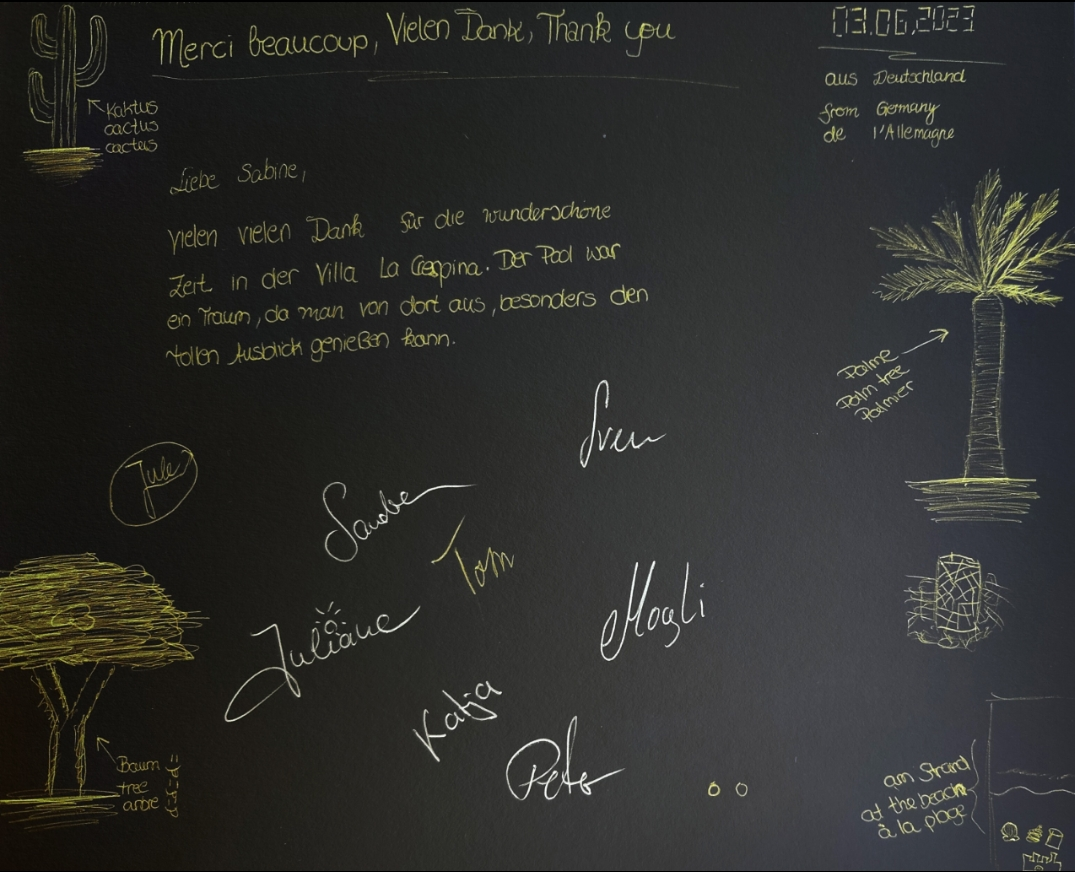 Merci beaucoup, Vielen Dank, Thank you
03.06.2023
aus Deutschland
from Germany
de l'Allemagne
Kaktus
cactus
cactus
Liebe Sabine,
vielen vielen Dank für die wunderschöne
Zeit in der Villa La Crespina. Der Pool war
ein Traum, da man von dort aus, besonders den
tollen Ausblick genießen kann.
Palme
Palm tree
Palmier
Sven
Jule
Sandra
Tom
Juliane
Mogli
Katja
Peter
Baum
tree
arbre
am Strand
at the beach
à la plage